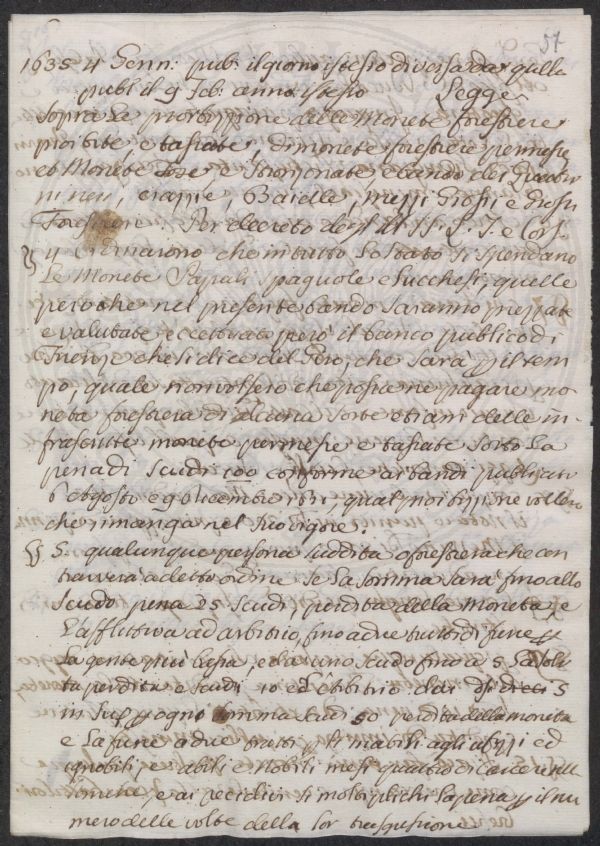 51
1635 4 Genn: pub: il giorno istesso diversa da quella
publ il 9 feb: anno istesso Legge
Sopra la proibizzione delle Monete forestiere
proibite, e tassate, di monete forestiere permesse
et Monete Tose, e stronzonate e bando dei Quattri
ni neri, crazzie, Baielle, mezzi Grossi e Grossi
Forestieri. Per decreto degl Ill SS. L. T. e Cons.
Ordinarono che in tutto lo stato si spendano
le Monete Papali Spagnole e Lucchesi, quelle
però che nel presente bando saranno prezzate
e valutate, eccettuato però il banco publico di
Firenze che si dice del Giro, che sarà p il tem
po, quale non vollero che possa ne pagare mo
neta forestiera di alcuna sorte etiam delle in
frascritte monete permesse e tassate sotto la
pena di scudi 100 conforme a bandi publicati
6 Agosto e 9 novembre 1631, qual proibizione vollero
che rimanga nel suo vigore.
S. qualunque persona suddita o forestiera che con
travverrà a detto ordine se la somma sarà fino allo
scudo pena 25 scudi, perdita della moneta, e
l'afflittiva ad arbitrio, fino a due tratti di fune p
la gente più bassa, e da uno scudo fino a 5 la soli
ta perdita e scudi 10 ed arbitrio dai 5
in su p ogni somma scudi 50 perdita della moneta
e la fune a due tratti p inabili agli ufizzi ed
ignobili, abili e Nobili mesi quattro di carcere nelle
, e ai recidivi si moltiplichi la pena p il nu
mero delle volte della lor trasgressione.